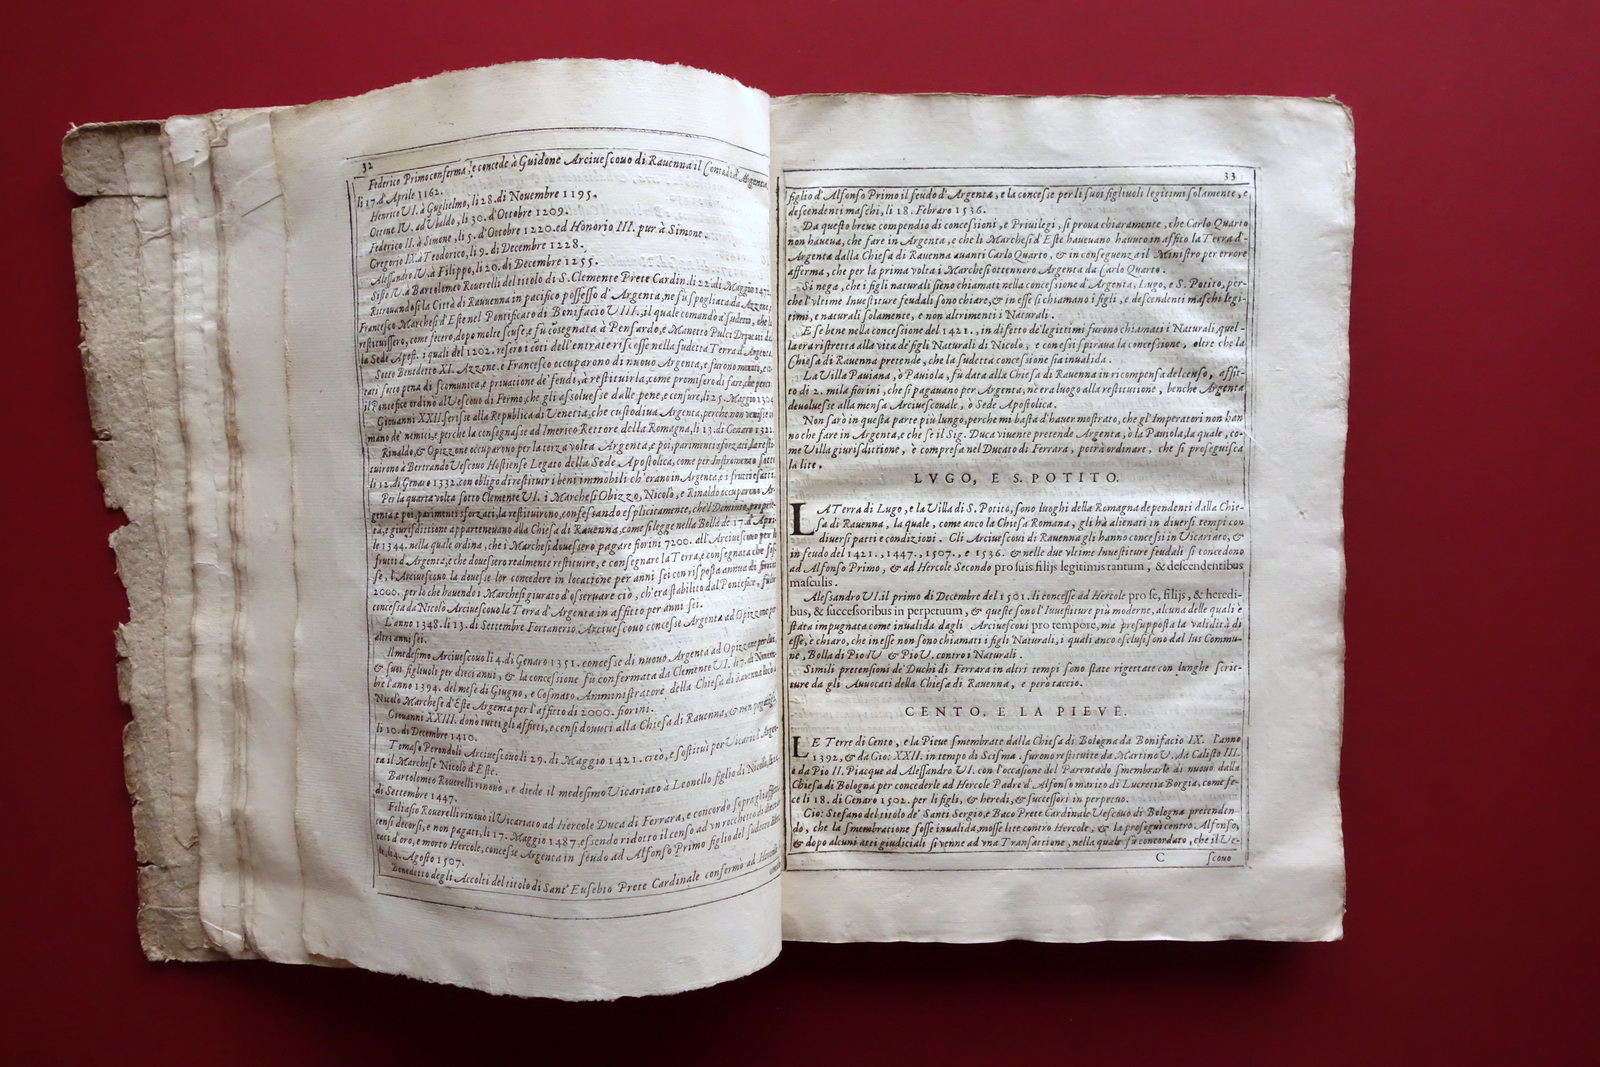 32
Federico Primo conferma, e concede à Guidone Arciuescouo di Rauenna il Contadi d'Argenta,
li 17. d'Aprile 1162.
Henrico VI. à Guglielmo, li 28. di Nouembre 1195.
Ottone IV. ad Vbaldo, li 30. d'Ottobre 1209.
Federico II. à Simone, li 5. d'Ottobre 1220. ed Honorio III. pur à Simone.
Gregorio IX. à Teodorico, li 9. di Decembre 1228.
Alessandro IV. à Filippo, li 20. di Decembre 1255.
Sisto IV. à Bartolomeo Rouerelli del titolo di S. Clemente Prete Cardin. li 22. di Maggio 147
Ritrouandosi la Città di Rauuenna in pacifico possesso d'Argenta, ne fù spogliata da Azzone
Francesco Marchesi d'Este nel Pontificato di Benifacio VIII., il quale comandò a' sudetti, che la
restituissero, come fecero, dopo molte scuse, e fù cõsegnata à Pensardo, e Manetto Pulci Deputati da
la Sede Apost. i quali del 1202. resero i cõti dell'entrate riscosse nella sudetta Terra d'Argenta
Sotto Benedetto XI. Azzone, e Francesco occuparono di nuovo Argenta, e furono
tari sotto pena di scomunica, e priuatione de' feudi, à restituirla, come promisero di fare, che
il Pontefice ordinò al Vescouo di Fermo, che gli assoluesse dalle pene, e censure, li 25. Maggio 1304
Giouanni XXII. scrisse alla Republica di Venetia, che custodiua Argenta, perche non venisse in
mano de' nemici, e perche la consegnasse ad Imerico Rettore della Romagna, li 13. di Genaro 1321.
Rinaldo, & Opizzone occuparono per la terza volta Argenta, e poi, parimenti sforzati, la resti-
tuirono à Bertrando Vescouo Hostiense Legato della Sede Apostolica, come per Instrumento sotto
li 12. di Genaro 1332. con obligo di restituir i beni immobili ch'erano in Argenta, e i frutti esatti.
Per la quarta volta sotto Clemente VI. i Marchesi Obizzo, Nicolò, e Rinaldo occuparono Ar-
genta, e poi, parimenti sforzati, la restituirono, confessando esplicitamente, che'l Dominio, proprie-
tà, e giurisdittione apparteneuano alla Chiesa di Rauenna, come si legge nella Bolla de 17. d'Apri-
le 1344. nella quale ordina, che i Marchesi douessero pagare fiorini 7200. all'Arciuescouo per li
frutti d'Argenta, e che douessero realmente restituire, e consegnare la Terra, e consegnata che fos-
se, l'Arciuescouo la douesse lor concedere in locatione per anni sei con risposta annua di fiorini
2000. per lo che hauendo i Marchesi giurato d'osseruare ciò, ch'era stabilito dal Pontefice, fù lor
concesta da Nicolò Arciuescouo la Terra d'Argenta in affitto per anni sei.
L'anno 1348. li 13. di Settembre Fortanerio Arciuescouo concesse Argenta ad Opizzone per
altri anni sei.
Il medesimo Arciuescouo li 4. di Genaro 1351. concesse di nuouo Argenta ad Opizzone per
& suoi figliuoli per dieci anni, & la concessione fù confermata da Clemente VI. li 7. di Nouem-
bre l'anno 1394. del mese di Giugno, e Cosmato Amministratore della Chiesa di Rauenna
Nicolò Marchese d'Este Argenta per l'affitto di 2000. fiorini.
Giouanni XXIII. donò tutti gli affitti, e censi douuti alla Chiesa di Rauenna, & non pagati
li 10. di Decembre 1410.
Tomaso Perondoli Arciuescouo li 29. di Maggio 1421. creò, e sostituì per Vicario d'Argen-
ta il Marchese Nicolò d'Este.
Bartolomeo Rouerelli rinouò, e diede il medesimo Vicariato à Leonello figlio di Nicolò
di Settembre 1447.
Filiasio Rouerelli rinouò il Vicariato ad Hercole Duca di Ferrara, e concordò sopra gli affitti
censi decorsi, e non pagati, li 17. Maggio 1487. essendo ridotto il censo ad vn rocchetto
cati d'oro, e morto Hercole, concesse Argenta in feudo ad Alfonso Primo figlio del sudetto
le, li 4. Agosto 1507.
Benedetto degli Accolti del titolo di Sant'Eusebio Prete Cardinale confermò ad Hercole
33
figlio d'Alfonso Primo il feudo d'Argenta, e la concesse per li suoi figliuoli legitimi solamente, e
descendenti maschi, li 18. Febraro 1536.
Da questo breue compendio di concessioni, e Priuilegi, si proua chiaramente, che Carlo Quarto
non haueua, che fare in Argenta, e che li Marchesi d'Este haueuano hauuto in affito la Terra d'-
Argenta dalla Chiesa di Rauenna auanti Carlo Quarto, & in conseguenza il Ministro per errore
afferma, che per la prima volta i Marchesi ottennero Argenta da Carlo Quarto.
Si nega, che i figli naturali sieno chiamati nella concessione d'Argenta, Lugo, e S. Potito, per-
che l'vltime Inuestiture feudali sono chiare, & in esse si chiamano i figli, e descendenti maschi legi-
timi, e naturali solamente, e non altrimenti i Naturali.
E se bene nella concessione del 1421., in difetto de' legittimi furono chiamati i Naturali, quel-
la era ristretta alla vita de' figli Naturali di Nicolò, e con essi spiraua la concessione, oltre che la
Chiesa di Rauenna pretende, che la sudetta concessione sia inualida.
La Villa Pauiana, ò Pauiola, fù data alla Chiesa di Rauenna in ricompensa del censo, affit-
to di 2. mila fiorini, che si pagauano per Argenta, nè era luogo alla restitutione, benche Argenta
deuoluesse alla mensa Arciuescouale, ò Sede Apostolica.
Non sarò in questa parte più lungo, perche mi basta d'hauer mostrato, che gl'Imperatori non han
no che fare in Argenta, e che se il Sig. Duca viuente pretende Argenta, ò la Pauiola, la quale, co-
me Villa giurisdittione, è compresa nel Ducato di Ferrara, potrà ordinare, che si proseguisca
la lite.
LVGO, E S. POTITO.
LA Terra di Lugo, e la Villa di S. Potito, sono luoghi della Romagna dependenti dalla Chie-
sa di Rauenna, la quale, come anco la Chiesa Romana, gli hà alienati in diuersi tempi con
diuersi patti e condizioni. Gli Arciuescoui di Rauenna gli hanno concessi in Vicariato, &
in feudo del 1421., 1447., 1507., e 1536. & nelle due vltime Inuestiture feudali si concedono
ad Alfonso Primo, & ad Hercole Secondo pro suis filijs legitimis tantum, & descendentibus
masculis.
Alessandro VI. il primo di Decembre del 1501. li concesse ad Hercole pro se, filijs, & heredi-
bus, & successoribus in perpetuum, & queste sono l'Inuestiture più moderne, alcuna delle quali è
stata impugnata come inualida dagli Arciuescoui pro tempore, ma presupposta la validità di
esse, è chiaro, che in esse non sono chiamati i figli Naturali, i quali anco esclusi sono dal Ius Commu-
ne, Bolla di Pio IV & Pio V. contro i Naturali.
Simili pretensioni de' Duchi di Ferrara in altri tempi sono state rigettate con lunghe scrit-
ture da gli Auuocati della Chiesa di Rauenna, e però taccio.
CENTO, E LA PIEVE.
LE Terre di Cento, e la Pieue smembrate dalla Chiesa di Bologna da Bonifacio IX. l'anno
1392, & da Gio: XXII. in tempo di Scisma, furono restituite da Martino V. da Calisto III.
e da Pio II. Piacque ad Alessandro VI. con l'occasione del Parentado smembrarle di nuouo dalla
Chiesa di Bologna per concederle ad Hercole Padre d'Alfonso marito di Lucretia Borgia, come fe-
ce li 18. di Genaro 1502. per li figli, & heredi, & successori in perpetuo.
Gio: Stefano del titolo de' Santi Sergio, e Baco Prete Cardinale Vescouo di Bologna pretenden-
do, che la smembratione fosse inualida, mosse lite contro Hercole, & la proseguì contro Alfonso,
& dopo alcuni atti giudiciali si venne ad vna Transattione, nella quale fù concordato, che il Ve-
C scouo